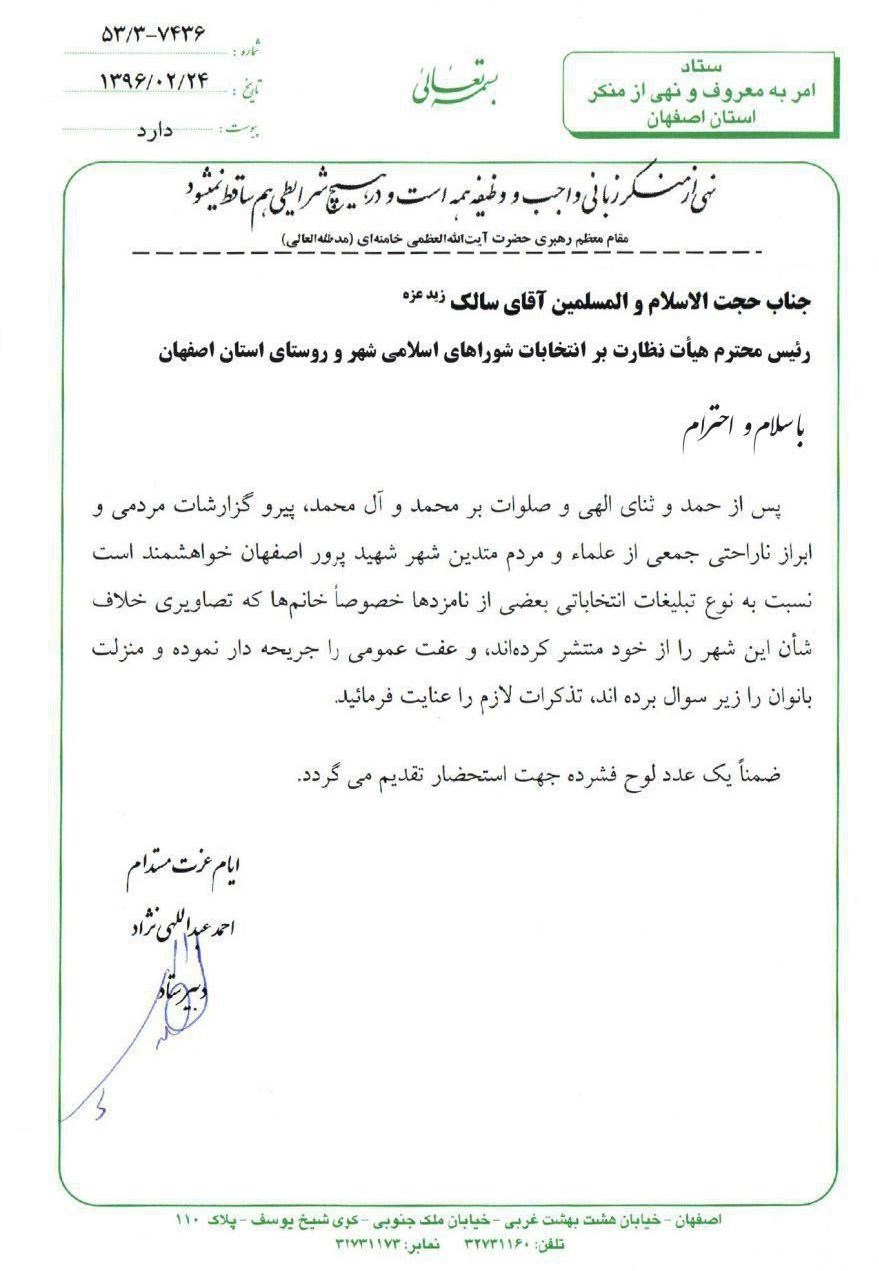 ستاد
امر به معروف و نهی از منکر
استان اصفهان
بسمه تعالی
شماره : ۵۳/۳-۷۴۳۶
تاریخ : ۱۳۹۶/۰۲/۲۴
پیوست : دارد
نهی از منکر زبانی واجب و وظیفه همه است و در هیچ شرایطی هم ساقط نمیشود
مقام معظم رهبری حضرت آیت‌الله‌العظمی خامنه‌ای (مدظله‌العالی)
جناب حجت الاسلام و المسلمین آقای سالک زید عزه
رئیس محترم هیأت نظارت بر انتخابات شوراهای اسلامی شهر و روستای استان اصفهان
با سلام و احترام
پس از حمد و ثنای الهی و صلوات بر محمد و آل محمد، پیرو گزارشات مردمی و
ابراز ناراحتی جمعی از علماء و مردم متدین شهر شهید پرور اصفهان خواهشمند است
نسبت به نوع تبلیغات انتخاباتی بعضی از نامزدها خصوصاً خانم‌ها که تصاویری خلاف
شأن این شهر را از خود منتشر کرده‌اند، و عفت عمومی را جریحه دار نموده و منزلت
بانوان را زیر سوال برده اند، تذکرات لازم را عنایت فرمائید.
ضمناً یک عدد لوح فشرده جهت استحضار تقدیم می گردد.
ایام عزت مستدام
احمد عبداللهی نژاد
دبیر ستاد
اصفهان - خیابان هشت بهشت غربی - خیابان ملک جنوبی - کوی شیخ یوسف - پلاک ۱۱۰
تلفن: ۳۲۷۳۱۱۶۰ نمابر: ۳۲۷۳۱۱۷۳